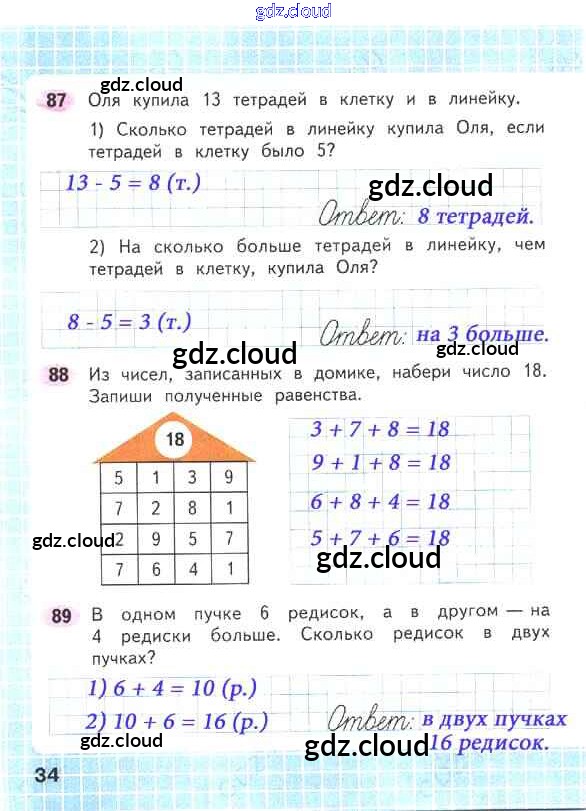 gdz.cloud
gdz.cloud
87 Оля купила 13 тетрадей в клетку и в линейку.
1) Сколько тетрадей в линейку купила Оля, если
тетрадей в клетку было 5?
13 - 5 = 8 (т.)
gdz.cloud
Ответ: 8 тетрадей.
2) На сколько больше тетрадей в линейку, чем
тетрадей в клетку, купила Оля?
8 - 5 = 3 (т.)
Ответ: на 3 больше.
gdz.cloud
gdz.cloud
88 Из чисел, записанных в домике, набери число 18.
Запиши полученные равенства.
18
5 1 3 9
7 2 8 1
2 9 5 7
7 6 4 1
gdz.cloud
3 + 7 + 8 = 18
9 + 1 + 8 = 18
6 + 8 + 4 = 18
5 + 7 + 6 = 18
gdz.cloud
89 В одном пучке 6 редисок, а в другом — на
4 редиски больше. Сколько редисок в двух
пучках?
1) 6 + 4 = 10 (р.)
gdz.cloud
2) 10 + 6 = 16 (р.)
Ответ: в двух пучках
16 редисок.
gdz.cloud
gdz.cloud
34